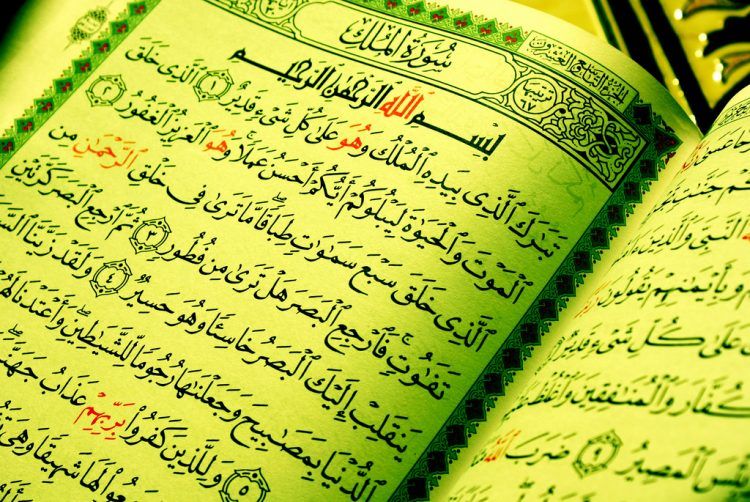 الجزء التاسع والعشرون
سُورَةُ المُلْكِ
ترتيبها ٦٧
بِسْمِ ٱللَّهِ ٱلرَّحْمَٰنِ ٱلرَّحِيمِ
تَبَٰرَكَ ٱلَّذِى بِيَدِهِ ٱلْمُلْكُ وَهُوَ عَلَىٰ كُلِّ شَىْءٍ قَدِيرٌ ١ ٱلَّذِى خَلَقَ
ٱلْمَوْتَ وَٱلْحَيَوٰةَ لِيَبْلُوَكُمْ أَيُّكُمْ أَحْسَنُ عَمَلًا ۚ وَهُوَ ٱلْعَزِيزُ ٱلْغَفُورُ ٢
ٱلَّذِى خَلَقَ سَبْعَ سَمَٰوَٰتٍ طِبَاقًا ۖ مَّا تَرَىٰ فِى خَلْقِ ٱلرَّحْمَٰنِ مِن
تَفَٰوُتٍ ۖ فَٱرْجِعِ ٱلْبَصَرَ هَلْ تَرَىٰ مِن فُطُورٍ ٣ ثُمَّ ٱرْجِعِ ٱلْبَصَرَ كَرَّتَيْنِ
يَنقَلِبْ إِلَيْكَ ٱلْبَصَرُ خَاسِئًا وَهُوَ حَسِيرٌ ٤ وَلَقَدْ زَيَّنَّا
ٱلدُّنْيَا بِمَصَٰبِيحَ وَجَعَلْنَٰهَا رُجُومًا لِّلشَّيَٰطِينِ ۖ وَأَعْتَدْنَا لَهُ
٥ وَلِلَّذِينَ كَفَرُوا۟ بِرَبِّهِمْ عَذَابُ جَهَنَّ
لَهَا شَهِيقًا وَهِىَ
ٱلنَّبِىَّ وَٱلَّذِينَ
وَبِأَيْمَٰنِهِمْ يَقُولُونَ
عَلَىٰ كُلِّ شَىْءٍ قَدِيرٌ
وَٱلْمُنَٰفِقِينَ وَٱغْلُظْ
ٱلْمَصِيرُ ٩ ضَرَبَ ٱللَّهُ